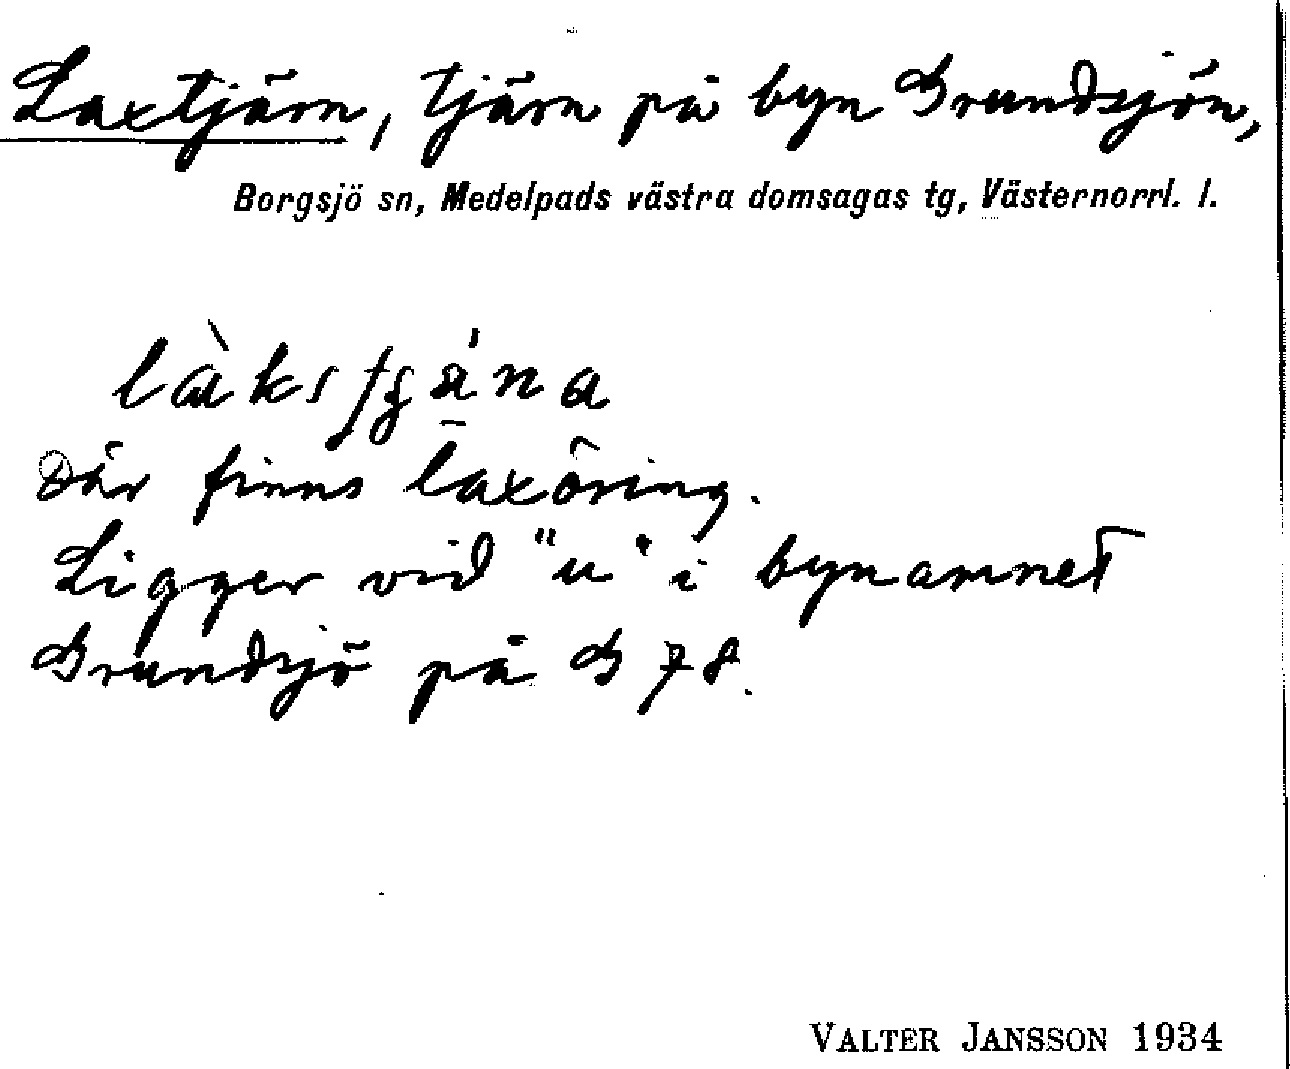 Laxtjärn, tjärn på byn Grundsjön,
Borgsjö sn, Medelpads västra domsagas tg, Västernorrl. l.
Där finns laxöring.
Ligger vid "u" i bynamnet
Grundsjö på G 78.
VALTER JANSSON 1934